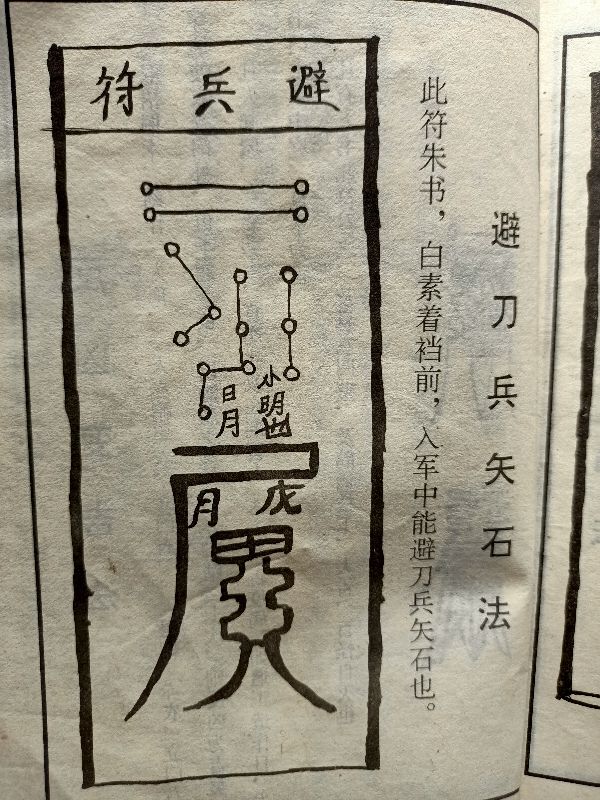 避刀兵矢石法
此符朱书，白素着裆前，入军中能避刀兵矢石也。
避兵符
小明也
日月
戊
月